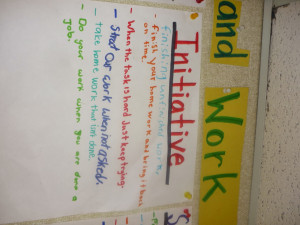 and Work
Initiative
- finishing unfinished work
- finish your home work and bring it back
on time
- When the task is hard just keep trying.
- Start our work when not asked.
- take home work that isnt done.
- Do your work when you are done a
job.
S